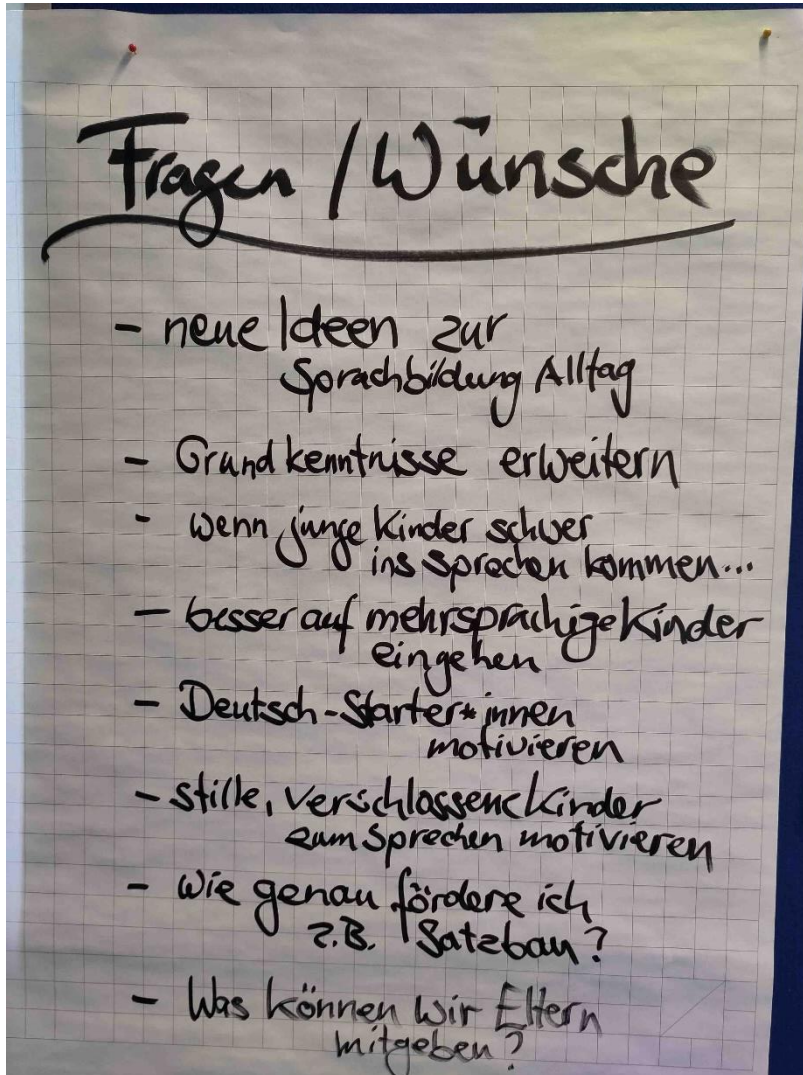 Fragen / Wünsche
- neue Ideen zur
Sprachbildung Alltag
- Grundkenntnisse erweitern
- wenn junge Kinder schwer
ins Sprechen kommen...
- besser auf mehrsprachige Kinder
eingehen
- Deutsch-Starter*innen
motivieren
- stille, verschlossene Kinder
zum Sprechen motivieren
- Wie genau fördere ich
z.B. Satzbau?
- Was können wir Eltern
mitgeben?